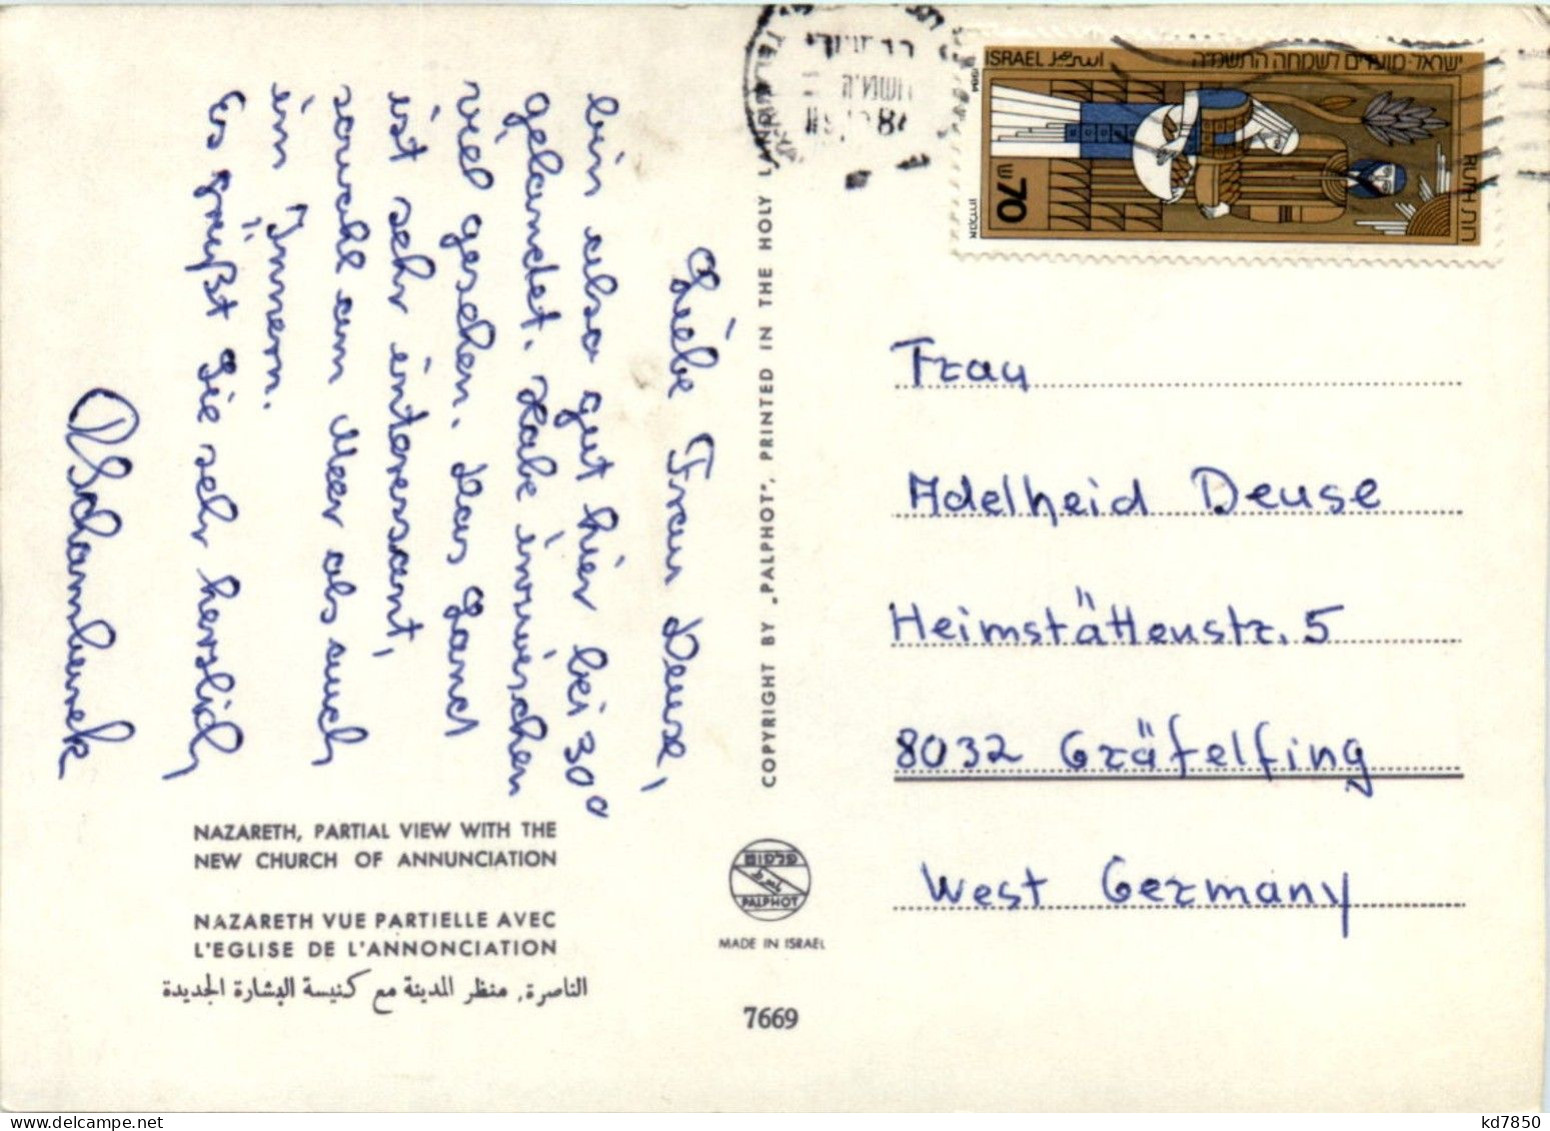 Liebe Frau Deuse,
bin also gut hier bei 30°
gelandet. Habe inzwischen
viel gesehen. Das Land
ist sehr interessant,
sowohl am Meer als auch
im Innern.
Es grüßt Sie sehr herzlich
NAZARETH, PARTIAL VIEW WITH THE
NEW CHURCH OF ANNUNCIATION
NAZARETH VUE PARTIELLE AVEC
L'EGLISE DE L'ANNONCIATION
الناصرة, منظر المدينة مع كنيسة البشارة الجديدة
COPYRIGHT BY „PALPHOT", PRINTED IN THE HOLY LAND
פלפוט
PALPHOT
MADE IN ISRAEL
7669
ISRAEL اسرائيل ישראל·מועדים לשמחה התשמ"ה
1984
70
RUTH רות
Frau
Adelheid Deuse
Heimstättenstr. 5
8032 Gräfelfing
West Germany
kd7850